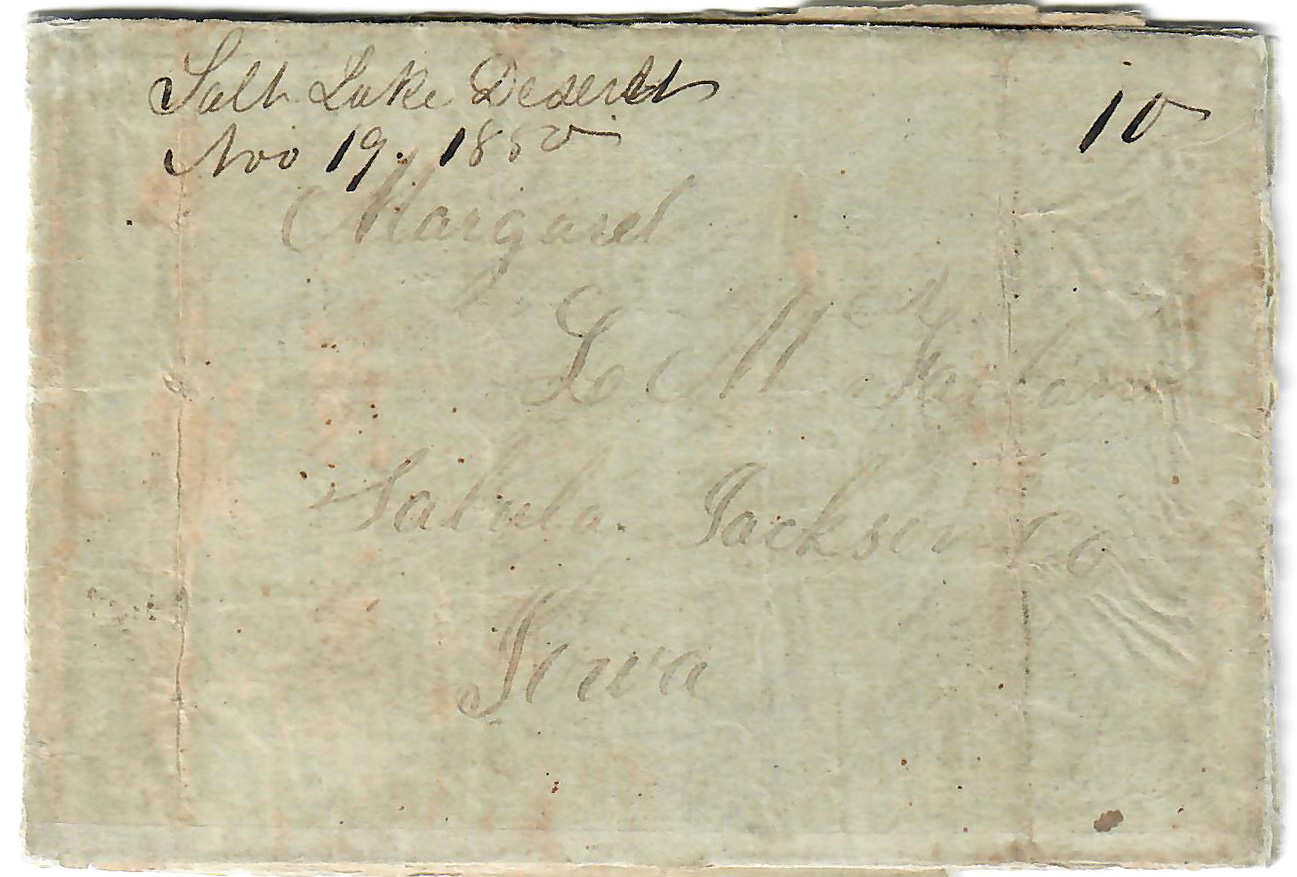 Salt Lake Deseret
Nov 19, 1850
10
Margaret
L M
Sabula Jackson Co
Iowa